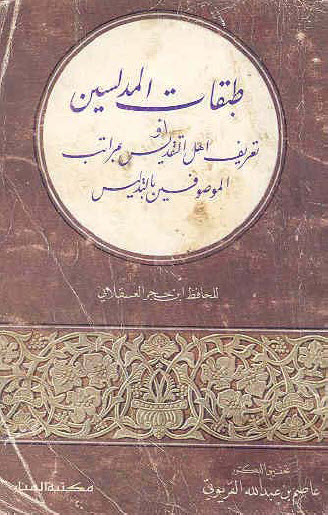 طبقات المدلسين
أو
تعريف اهل التقديس بمراتب
الموصوفين بالتدليس
للحافظ ابن حجر العسقلاني
تحقيق الدكتور
عاصم بن عبدالله القريوتي
مكتبة المنار